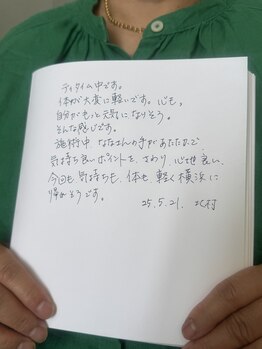 ティタイム中です。
体が大変に軽いです。心も。
自分がもっと元気になりそう。
そんな感じです。
施術中、ななさんの手があたたかで、
気持ち良いポイントを、さわり、心地良い、
今回も気持ちも、体も軽く横浜に
帰れそうです。
25.5.21. 北村